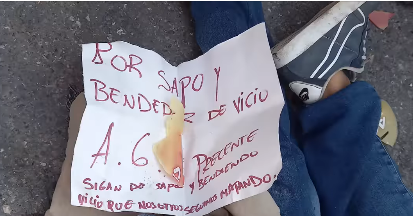 POR SAPO Y
BENDEDOR DE VICIO
A.G. PRECENTE
SIGAN DO SAPO Y BENDIENDO
VICIO QUE NOSOTROS SEGIMOS MATANDO.